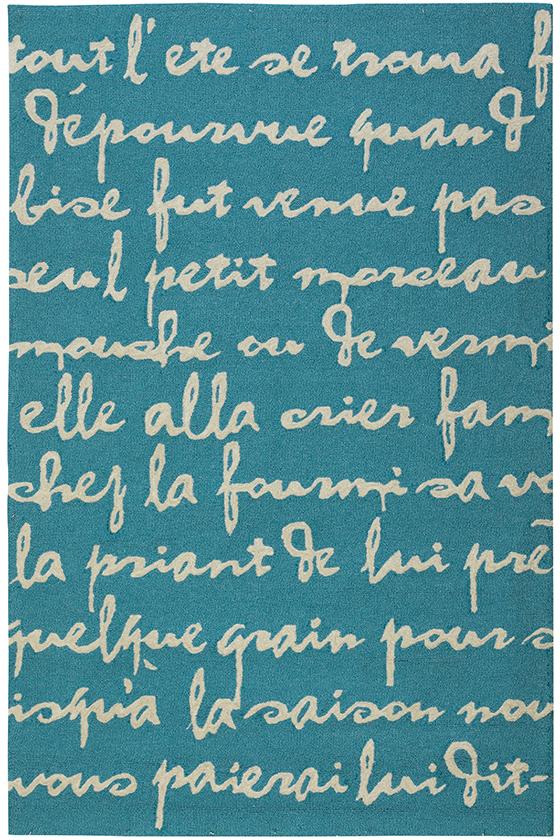 tout l'ete se trouva f
dépourvue quand
bise fut venue pas
seul petit morceau
mouche ou de vermi
elle alla crier fam
chez la fourmi sa vo
la priant de lui prê
quelque grain pour s
isqu'à la saison nou
vous paierai lui dit-